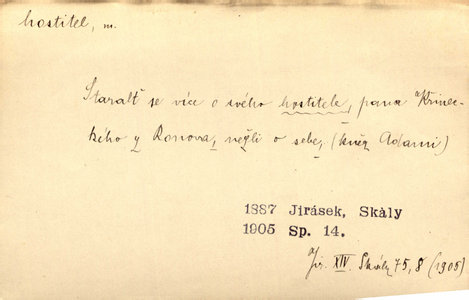 hostitel, m.
Staralť se více o svého hostitele, pana Křinec-
kého z Ronova, nežli o sebe, (kněz Adami)
1887 Jirásek, Skály
1905 Sp. 14.
Jir. XIV. Skály 75, 8 (1905)